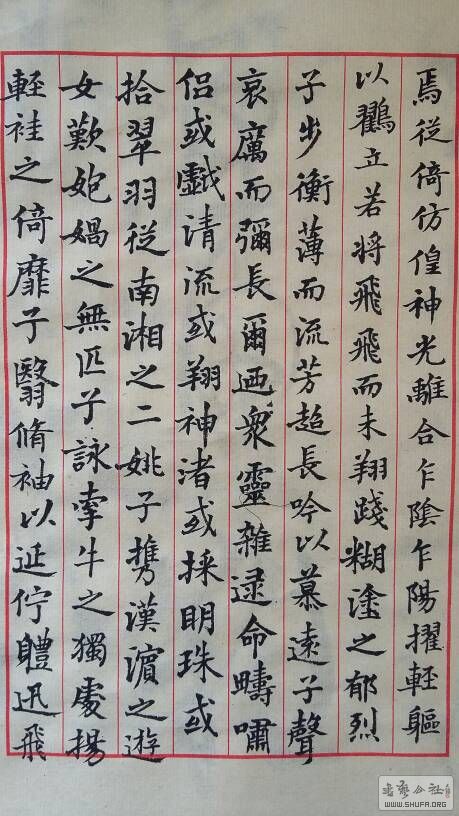 焉從倚仿偟神光離合乍陰乍陽擢輕軀
以鸛立若将飛飛而未翔踐糊塗之郁烈
子步衡薄而流芳超長吟以慕遠子聲
哀厲而彌長爾迺衆靈雜逯命疇嘯
侣或戲清流或翔神渚或採明珠或
拾翠羽從南湘之二姚子携漢濵之遊
女歎匏媧之無匹子詠牽牛之獨處揚
輕袿之倚靡子翳脩袖以延佇體迅飛
書藝公社
WWW.SHUFA.ORG